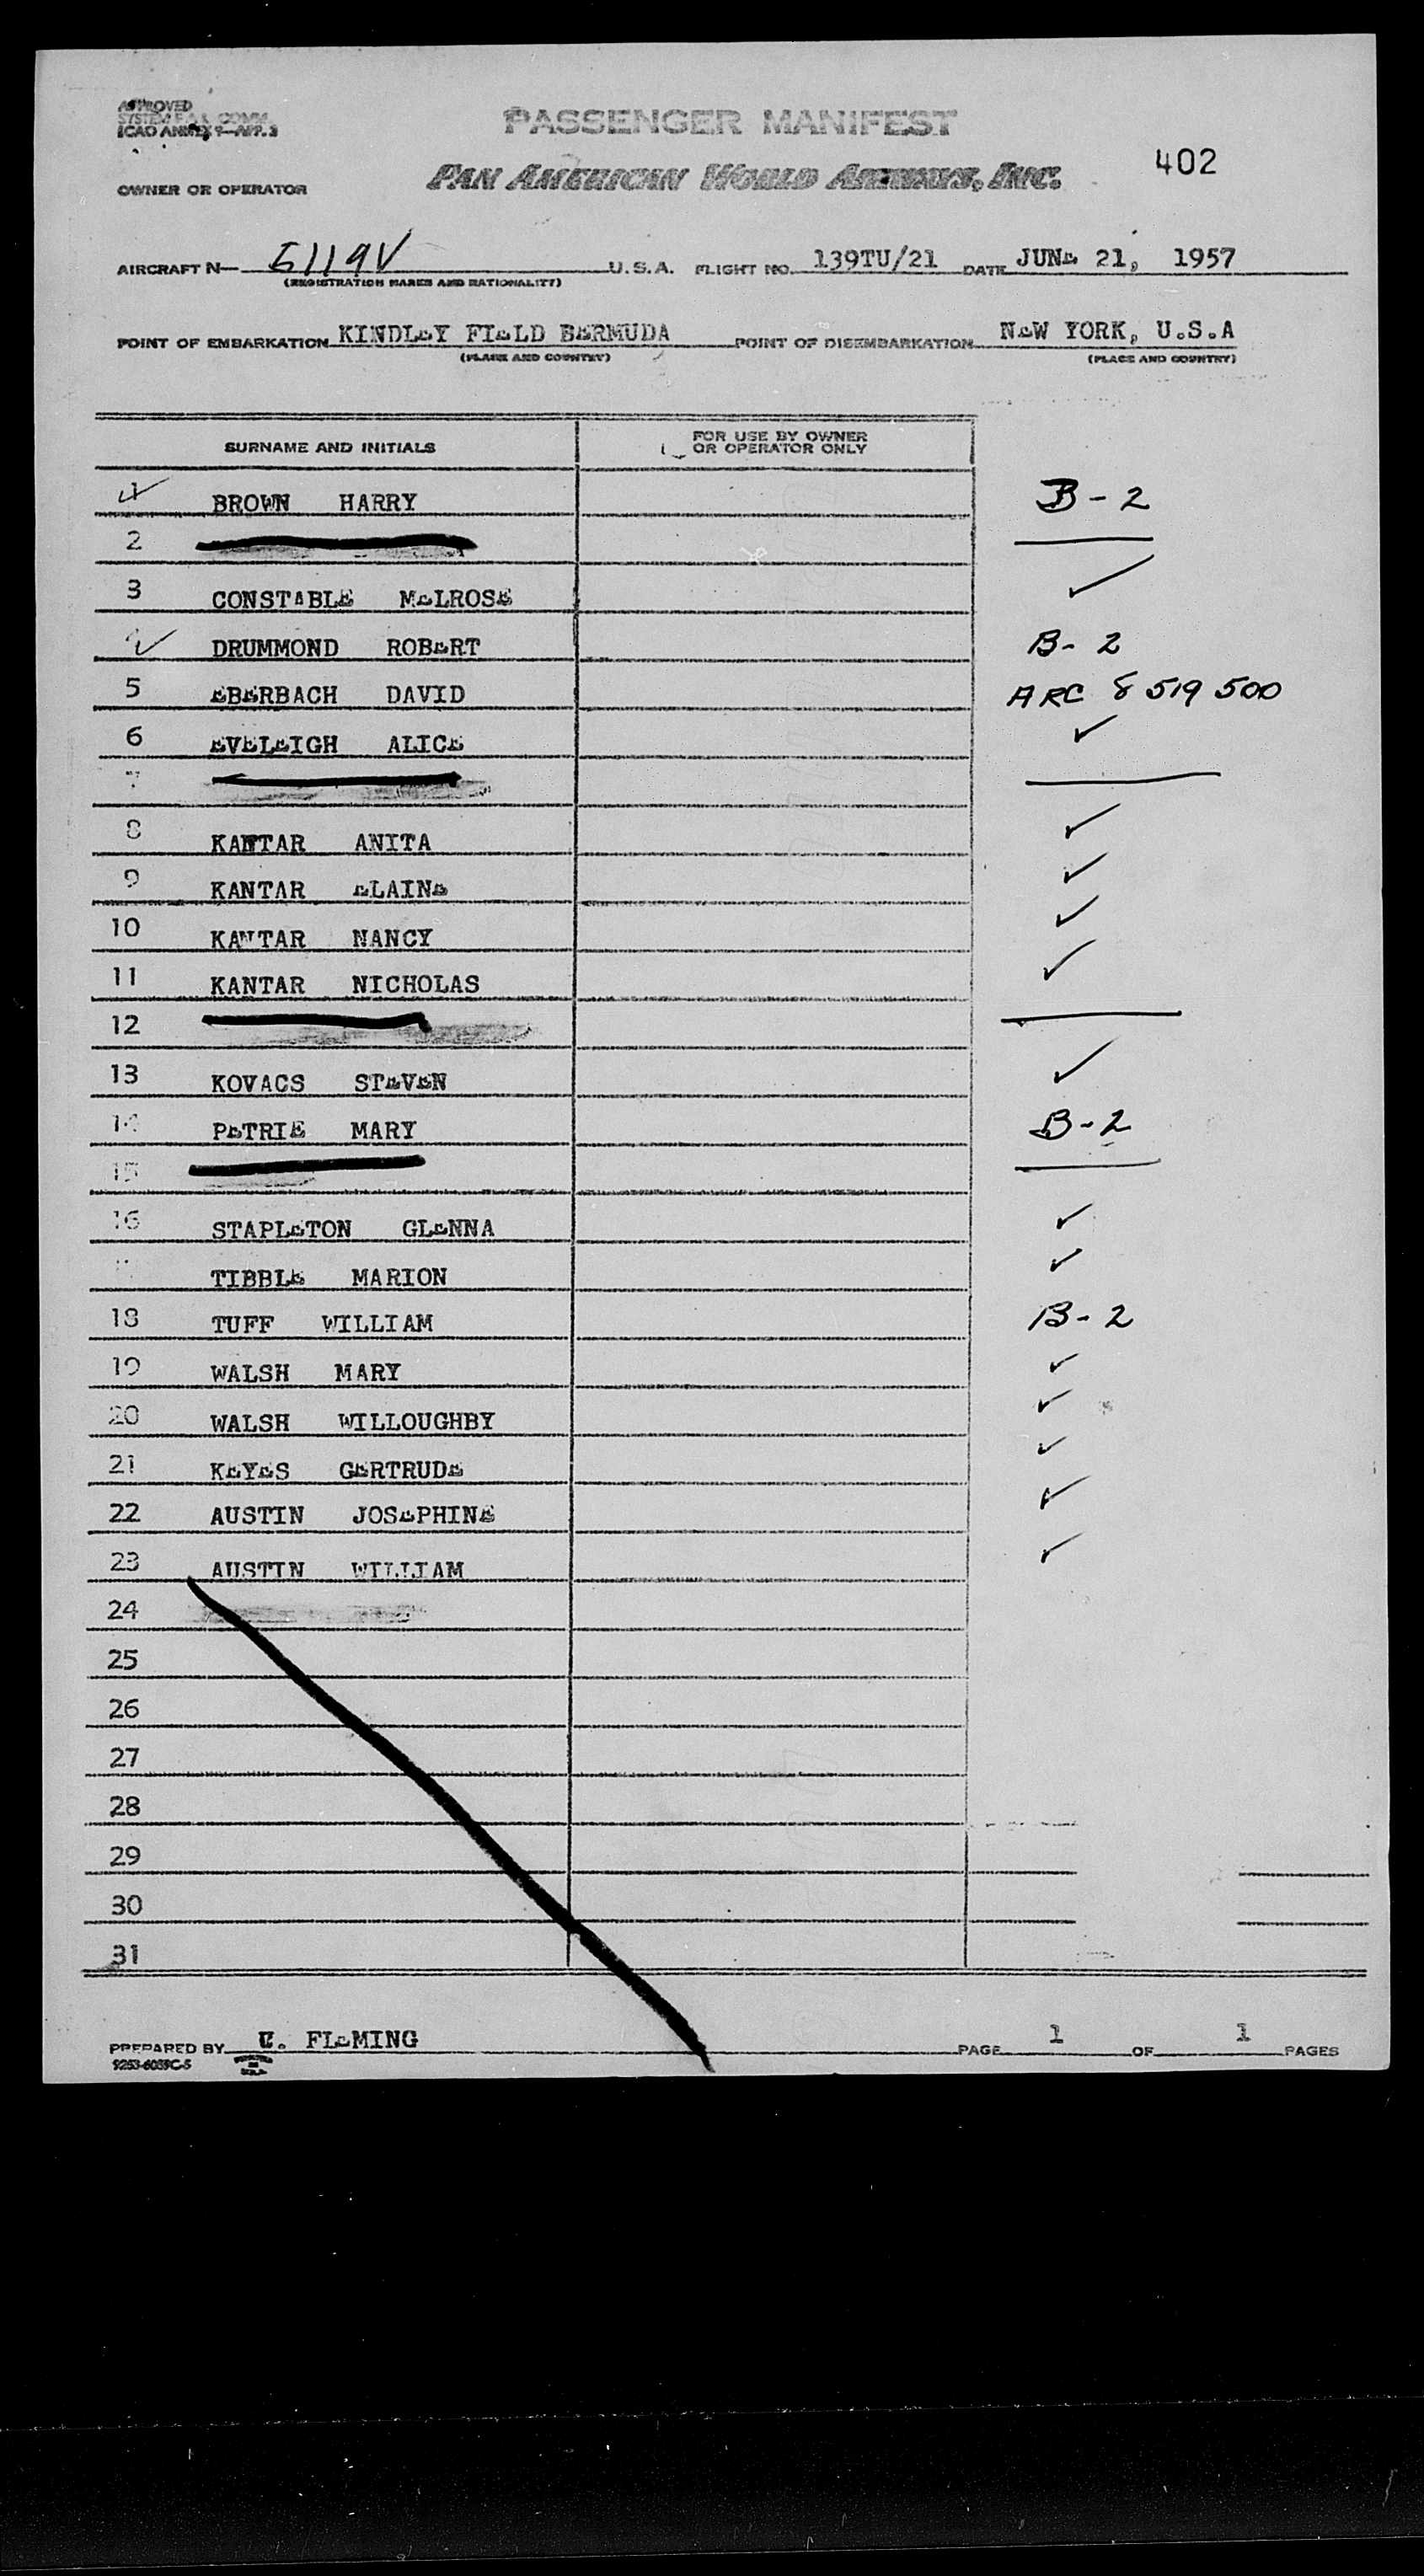 APPROVED
SYSTEM F.A.L. COMM.
ICAO ANNEX 9—APP. 3
PASSENGER MANIFEST
402
OWNER OR OPERATOR
PAN AMERICAN WORLD AIRWAYS, INC.
AIRCRAFT N— 5119V U.S.A. FLIGHT NO. 139TU/21 DATE JUNE 21, 1957
(REGISTRATION MARKS AND NATIONALITY)
POINT OF EMBARKATION KINDLEY FIELD BERMUDA POINT OF DISEMBARKATION NEW YORK, U.S.A
(PLACE AND COUNTRY) (PLACE AND COUNTRY)
SURNAME AND INITIALS FOR USE BY OWNER
OR OPERATOR ONLY
1 BROWN HARRY B-2
2
3 CONSTABLE MELROSE ✓
✓ DRUMMOND ROBERT B-2
5 EBERBACH DAVID ARC 8 519 500
6 EVELEIGH ALICE ✓
7
8 KANTAR ANITA ✓
9 KANTAR ELAINE ✓
10 KANTAR NANCY ✓
11 KANTAR NICHOLAS ✓
12
13 KOVACS STEVEN ✓
14 PETRIE MARY B-2
15
16 STAPLETON GLENNA ✓
TIBBLE MARION ✓
18 TUFF WILLIAM B-2
19 WALSH MARY ✓
20 WALSH WILLOUGHBY ✓
21 KEYES GERTRUDE ✓
22 AUSTIN JOSEPHINE ✓
23 AUSTIN WILLIAM ✓
24
25
26
27
28
29
30
31
PREPARED BY C. FLEMING PAGE 1 OF 1 PAGES
9253-6039C-5